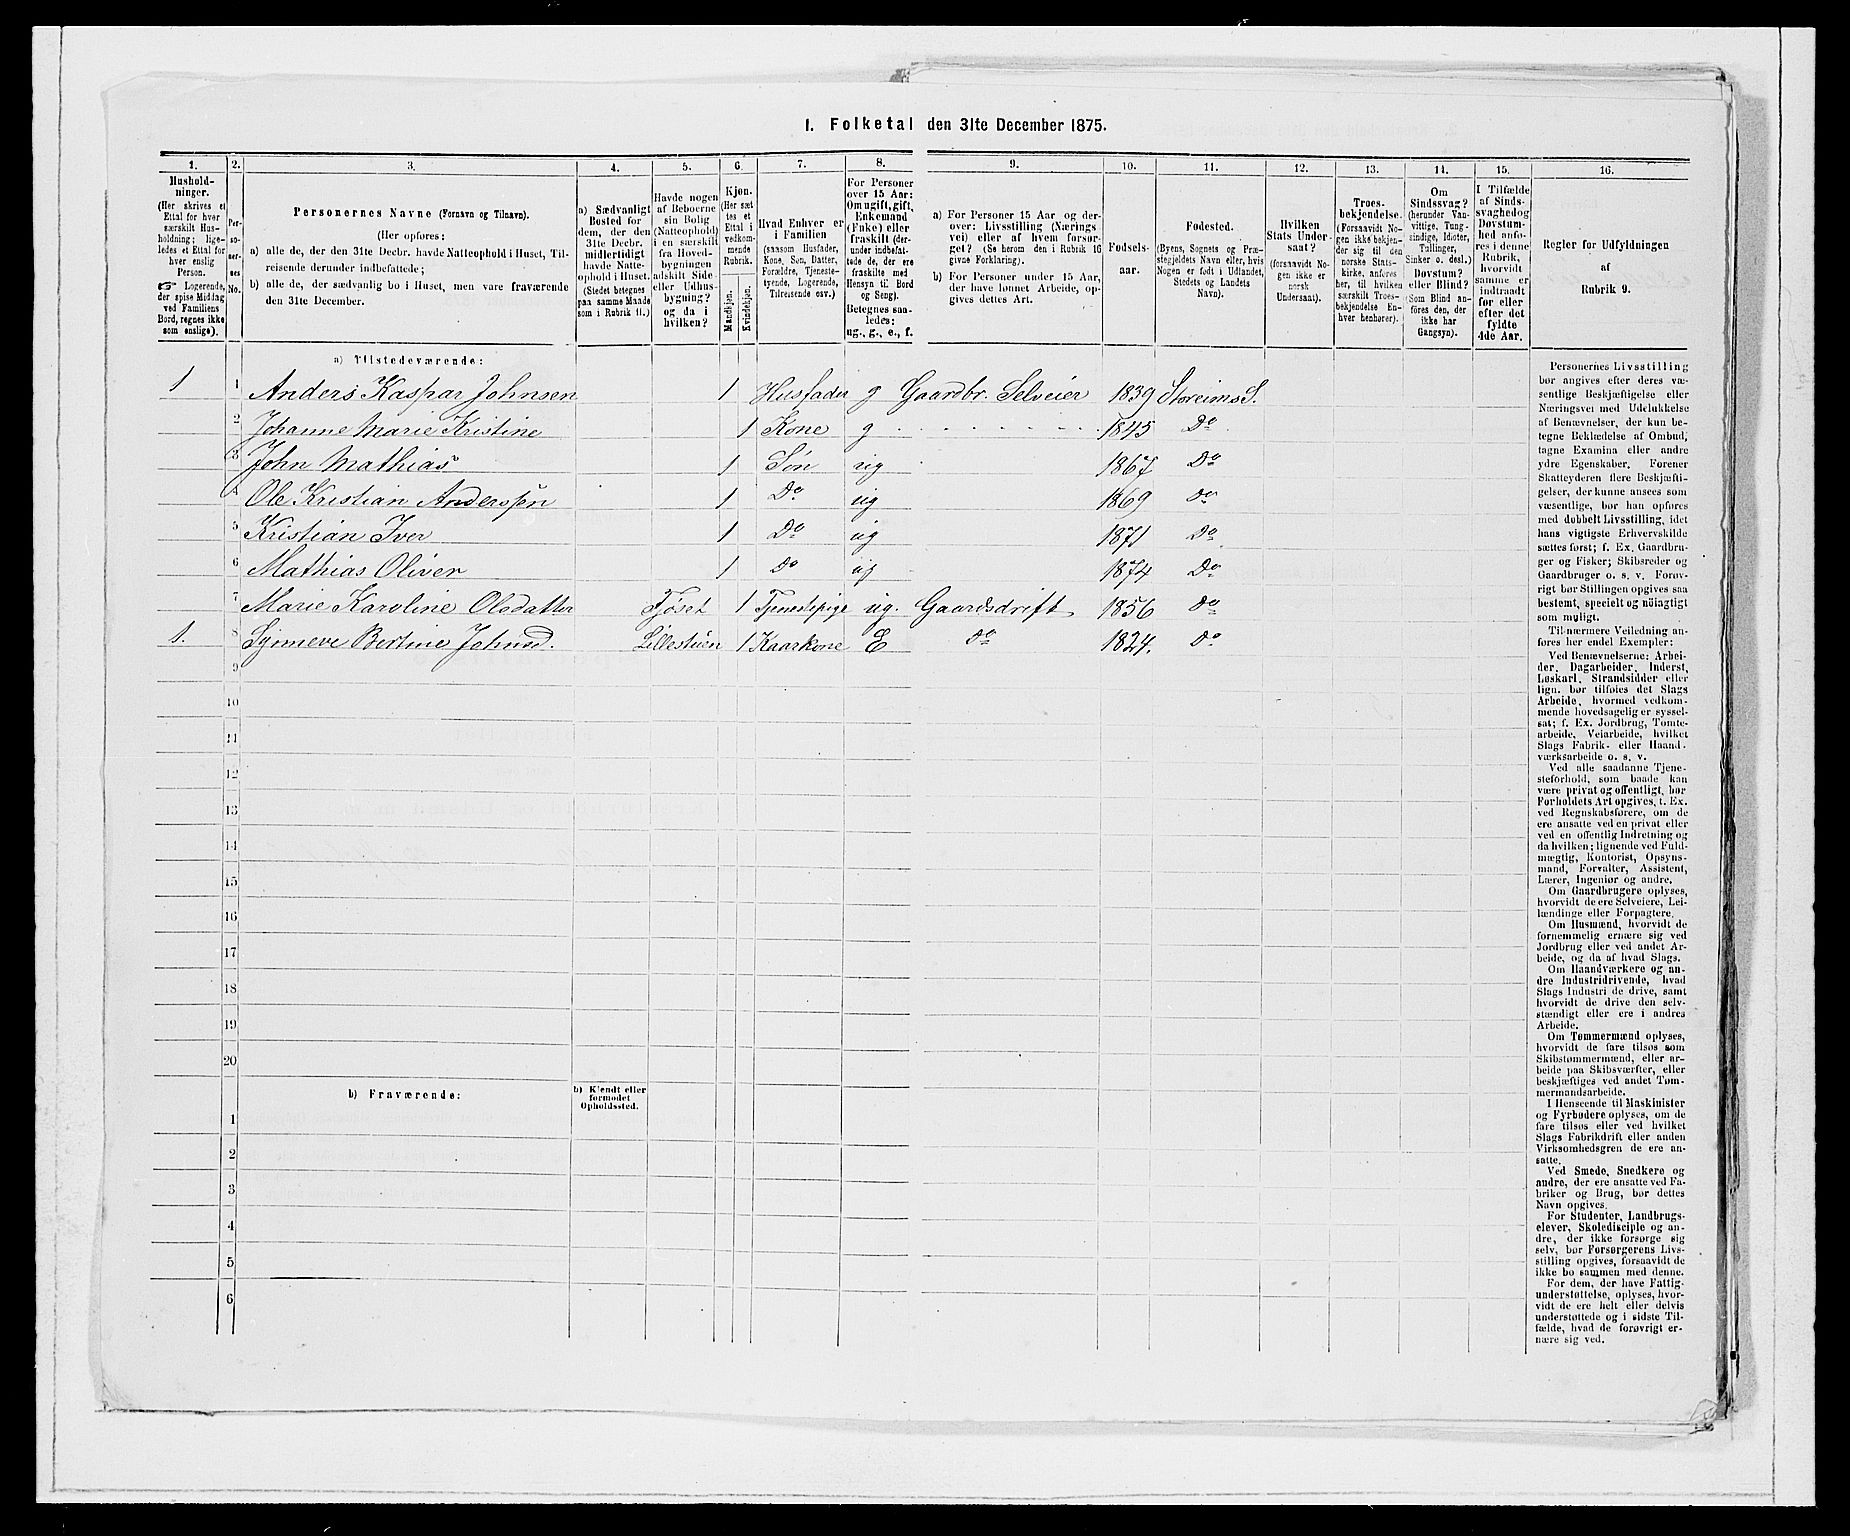 I. Folketal den 31te December 1875.
1. 2. 3. 4. 5. 6. 7. 8. 9. 10. 11. 12. 13. 14. 15. 16.
Hushold-
ninger.
(Her skrives et
Ettal for hver
særskilt Hus-
holdning; lige-
ledes et Ettal for
hver enslig
Person.
☞ Logerende,
der spise Middag
ved Familiens
Bord, regnes ikke
som enslige).
Per-
so-
ner-
nes
No.
Personernes Navne (Fornavn og Tilnavn).
(Her opføres:
a) alle de, der den 31te Decbr. havde Natteophold i Huset, Til-
reisende derunder indbefattede;
b) alle de, der sædvanlig bo i Huset, men vare fraværende
den 31te December.
a) Sædvanligt
Bosted for
dem, der den
31te Decbr.
midlertidigt
havde Natte-
ophold i Huset.
(Stedet betegnes
paa samme Maade
som i Rubrik 11.)
Havde nogen
af Beboerne
sin Bolig
(Natteophold)
i en særskilt
fra Hoved-
bygningen
adskilt Side-
eller Udhus-
bygning?
og da i
hvilken?
Kjøn.
(Her sæt-
tes et
Ettal i
vedkom-
mende
Rubrik.
Mandkjøn.
Kvindekjøn.
Hvad Enhver er
i Familien
(saasom Husfader,
Kone, Søn, Datter,
Forældre, Tjeneste-
tyende, Logerende,
Tilreisende osv.)
For Personer
over 15 Aar:
Om ugift, gift,
Enkemand
(Enke) eller
fraskilt (der-
under indbefat-
tede de, der ere
fraskilte med
Hensyn til Bord
og Seng).
Betegnes saa-
ledes:
ug., g., e., f.
a) For Personer 15 Aar og der-
over: Livsstilling (Nærings-
vei) eller af hvem forsør-
get? (Se herom den i Rubrik 16
givne Forklaring).
b) For Personer under 15 Aar,
der have lønnet Arbeide, op-
gives dettes Art.
Fødsels-
aar.
Fødested.
(Byens, Sognets og Præ-
stegjeldets Navn eller, hvis
Nogen er født i Udlandet,
Stedets og Landets
Navn).
Hvilken
Stats Under-
saat?
(forsaavidt No-
gen ikke er
norsk
Undersaat).
Troes-
bekjendelse.
(Forsaavidt No-
gen ikke bekjen-
der sig til den
norske Stats-
kirke, anføres
her, til hvilken
særskilt Troes-
bekjendelse En-
hver henhører).
Om
Sindssvag?
(herunder Van-
vittige, Tung-
sindige, Idioter,
Tullinger,
Sinker o. desl.)
Døvstum?
eller Blind?
(Som Blind an-
føres den, der
ikke har
Gangsyn).
I Tilfælde
af Sinds-
svaghed og
Døvstum-
hed anfø-
res i denne
Rubrik,
hvorvidt
samme er
indtraadt
før eller
efter det
fyldte
4de Aar.
Regler for Udfyldningen
af
Rubrik 9.
a) Tilstedeværende:
1 1 Anders Kaspar Johnsen 1 Husfader g Gaardbr. Selveier 1839 Storeims S.
2 Johanne Marie Kristine 1 Kone g 1845 Do
3 John Mathias 1 Søn ug 1867 Do
4 Ole Kristian Anderssøn 1 Do ug 1869 Do
5 Kristian Iver 1 Do ug 1871 Do
6 Mathias Oliver 1 Do ug 1874 Do
7 Marie Karoline Olsdatter Fjøset 1 Tjenestepige ug. Gaardsdrift 1856 Do
1. 8 Synneve Bertine Johnsd. Lillestuen 1 Kaarkone E Do 1824. Do
9
10
11
12
13
14
15
16
17
18
19
20
b) Fraværende:
b) Kjendt eller
formodet
Opholdssted.
1
2
3
4
5
6
Personernes Livsstilling
bør angives efter deres væ-
sentlige Beskjæftigelse eller
Næringsvei med Udelukkelse
af Benævnelser, der kun be-
tegne Beklædelse af Ombud,
tagne Examina eller andre
ydre Egenskaber. Forener
Skatteyderen flere Beskjæfti-
gelser, der kunne ansees som
væsentlige, bør han opføres
med dobbelt Livsstilling, idet
hans vigtigste Erhvervskilde
sættes først; f. Ex. Gaardbru-
ger og Fisker; Skibsreder og
Gaardbruger o. s. v. Forøv-
rigt bør Stillingen opgives saa
bestemt, specielt og nøiagtigt
som muligt.
Til nærmere Veiledning an-
føres her endel Exempler:
Ved Benævnelserne: Arbei-
der, Dagarbeider, Inderst,
Løskarl, Strandsidder eller
lign. bør tilføies det Slags
Arbeide, hvormed vedkom-
mende hovedsagelig er syssel-
sat; f. Ex. Jordbrug, Tomte-
arbeide, Veiarbeide, hvilket
Slags Fabrik- eller Haand-
værksarbeide o. s. v.
Ved alle saadanne Tjene-
steforhold, som baade kan
være privat og offentligt, bør
Forholdets Art opgives, t. Ex.
ved Regnskabsførere, om de
ere ansatte ved en privat eller
ved en offentlig Indretning og
da hvilken; lignende ved Fuld-
mægtig, Kontorist, Opsyns-
mand, Forvalter, Assistent,
Lærer, Ingeniør og andre.
Om Gaardbrugere oplyses,
hvorvidt de ere Selveiere, Lei-
lændinge eller Forpagtere.
Om Husmænd, hvorvidt de
fornemmelig ernære sig ved
Jordbrug eller ved andet Ar-
beide, og da af hvad Slags.
Om Haandværkere og an-
dre Industridrivende, hvad
Slags Industri de drive, samt
hvorvidt de drive den selv-
stændigt eller ere i andres
Arbeide.
Om Tømmermænd oplyses,
hvorvidt de fare tilsøs som
Skibstømmermænd, eller ar-
beide paa Skibsværfter, eller
beskjæftiges ved andet Tøm-
mermandsarbeide.
I Henseende til Maskinister
og Fyrbødere oplyses, om de
fare tilsøs eller ved hvilket
Slags Fabrikdrift eller anden
Virksomhedsgren de ere an-
satte.
Ved Smede, Snedkere og
andre, der ere ansatte ved Fa-
briker og Brug, bør dettes
Navn opgives.
For Studenter, Landbrugs-
elever, Skoledisciple og an-
dre, der ikke forsørge sig
selv, bør Forsørgerens Livs-
stilling opgives, forsaavidt de
ikke bo sammen med denne.
For dem, der have Fattig-
understøttelse, oplyses, hvor-
vidt de ere helt eller delvis
understøttede og i sidste Til-
fælde, hvad de forøvrigt er-
nære sig ved.